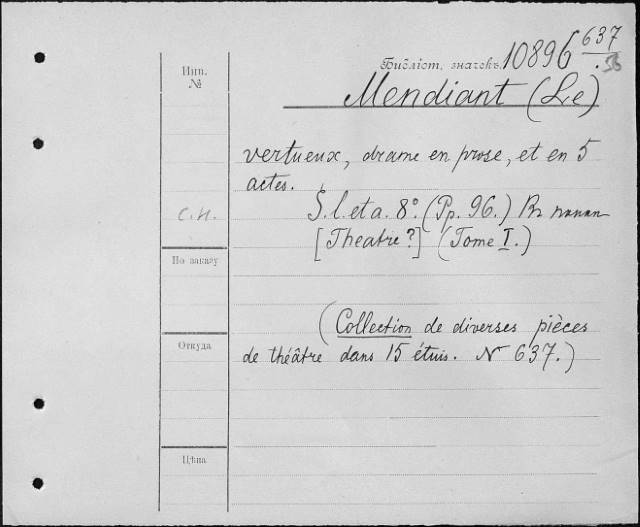 637
Библіот. значекъ 10896
Инв.
№
Mendiant (Le)
vertueux, drame en prose, et en 5
actes.
С.Н. S. l. et a. 8º. (Pp. 96.) Въ
[Theatre?] (Tome I.)
По заказу
(Collection de diverses pièces
Откуда
de théâtre dans 15 étuis. № 637.)
Цѣна